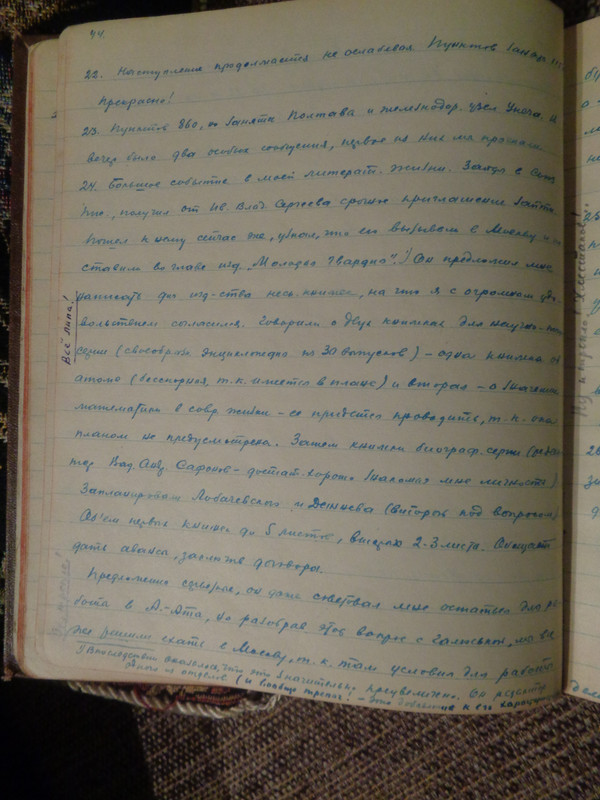 44.
22. Наступление продолжается не ослабевая. Пунктов занят
Прекрасно!
23. Пунктов 860, заняты Полтава и железнодор. узел Унеча. И
вечер было два особых сообщения, первое из них мы прослуш
24. Большое событие в моей литерат. жизни. Зайдя в Союз
получил от Ив. Влад. Сергеева срочное приглашение зайти.
Пошел к нему сейчас же, узнал, что его вызывают в Москву и
ставили во главе изд. „Молодая Гвардия“.¹) Он предложил мне
написать для изд-ства неск. книжек, на что я с огромным удо
вольствием согласился. Говорили о двух книжках для научно-
серии (своеобразн. энциклопедия из 30 выпусков) – одна книжка об
атоме (бесспорная, т.к. имеется в плане) и вторая – о значении
математики в совр. жизни – ее придется проводить, т.к. она
планом не предусмотрена. Затем книжки биограф. серии (редак
тор Вад. Анд. Сафонов – достат. хорошо знакомая мне личность).
Запланировали Лобачевского и Дежнева (второй под вопросом)
Об'ем первых книжек до 5 листов, вторых 2-3 листа. Обещает
дать аванс, заключив договоры.
Предложение серьезное, он даже советовал мне остаться для ра
боты в А.-Ата, но разобрав этот вопрос с Галюськой, мы все
же решили ехать в Москву, т.к. там условия для работы
¹) Впоследствии оказалось, что это значительно преувеличено. Он редактор
одного из отделов (и вообще трепач! – это добавление к его характ
Всё липа!